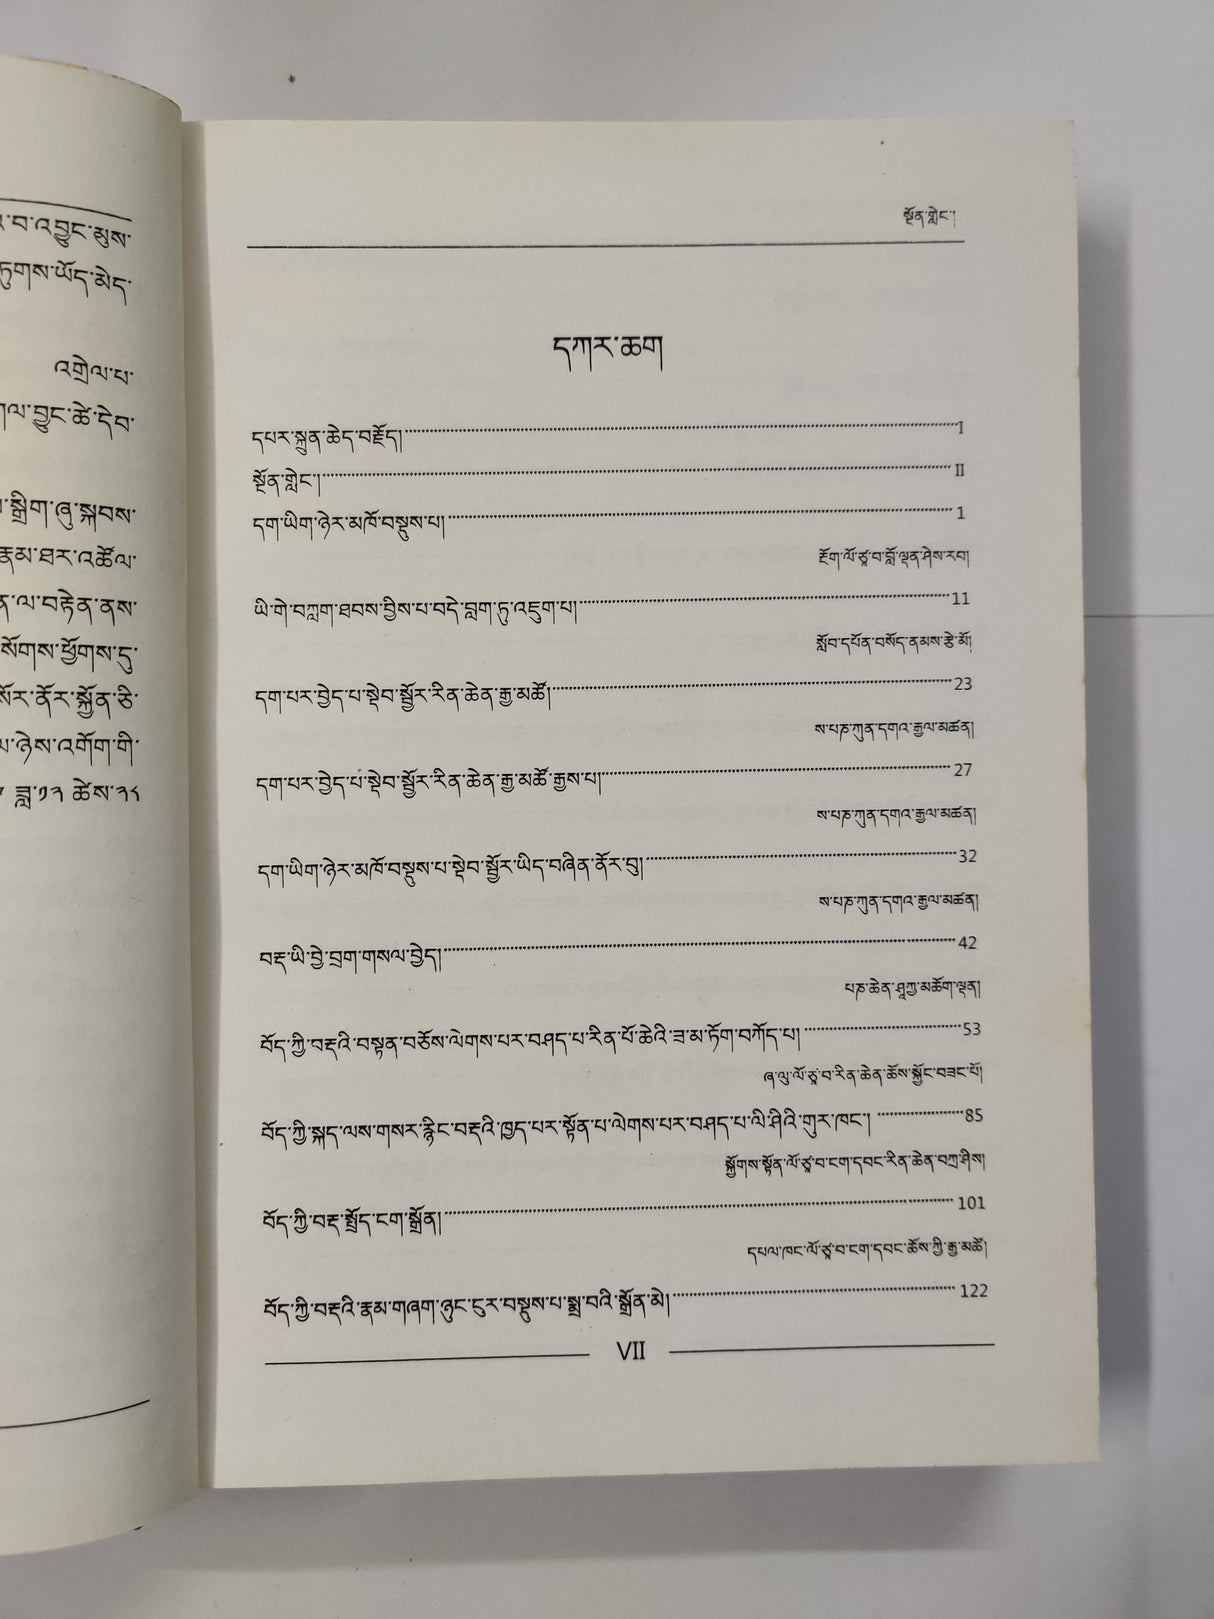 འི་བ་འབྱུང་མུས་
ཏུགས་ཡོད་མེད་
འགྲེལ་པ་
ལ་བྱུང་ཚེ་དེབ་
སྒྲིག་ཞུ་སྐབས་
རྣམ་ཐར་འཚོལ་
ལ་བརྟེན་ནས་
སོགས་ཕྱོགས་དུ་
སོར་ནོར་སྐྱོན་ཅི་
ཉེས་འགོག་གི་
ཟླ་༡༢ ཚེས་༢༨
སྔོན་གླེང་།
དཀར་ཆག
དཔར་སྐྲུན་ཆེད་བརྗོད། I
སྔོན་གླེང་། II
དག་ཡིག་ཉེར་མཁོ་བསྡུས་པ། 1
རྔོག་ལོ་ཙཱ་བ་བློ་ལྡན་ཤེས་རབ།
ཡི་གེ་བཀླག་ཐབས་བྱིས་པ་བདེ་བླག་ཏུ་འཇུག་པ། 11
སློབ་དཔོན་བསོད་ནམས་རྩེ་མོ།
དག་པར་བྱེད་པ་སྡེབ་སྦྱོར་རིན་ཆེན་རྒྱ་མཚོ། 23
ས་པཎ་ཀུན་དགའ་རྒྱལ་མཚན།
དག་པར་བྱེད་པ་སྡེབ་སྦྱོར་རིན་ཆེན་རྒྱ་མཚོ་རྒྱས་པ། 27
ས་པཎ་ཀུན་དགའ་རྒྱལ་མཚན།
དག་ཡིག་ཉེར་མཁོ་བསྡུས་པ་སྡེབ་སྦྱོར་ཡིད་བཞིན་ནོར་བུ། 32
ས་པཎ་ཀུན་དགའ་རྒྱལ་མཚན།
བརྡ་ཡི་བྱེ་བྲག་གསལ་བྱེད། 42
པཎ་ཆེན་ཤཱཀྱ་མཆོག་ལྡན།
བོད་ཀྱི་བརྡའི་བསྟན་བཅོས་ལེགས་པར་བཤད་པ་རིན་པོ་ཆེའི་ཟ་མ་ཏོག་བཀོད་པ། 53
ཞ་ལུ་ལོ་ཙཱ་བ་རིན་ཆེན་ཆོས་སྐྱོང་བཟང་པོ།
བོད་ཀྱི་སྐད་ལས་གསར་རྙིང་བརྡའི་ཁྱད་པར་སྟོན་པ་ལེགས་པར་བཤད་པ་ལི་ཤིའི་གུར་ཁང་། 85
སྐྱོགས་སྟོན་ལོ་ཙཱ་བ་ངག་དབང་རིན་ཆེན་བཀྲ་ཤིས།
བོད་ཀྱི་བརྡ་སྤྲོད་ངག་སྒྲོན། 101
དཔལ་ཁང་ལོ་ཙཱ་བ་ངག་དབང་ཆོས་ཀྱི་རྒྱ་མཚོ།
བོད་ཀྱི་བརྡའི་རྣམ་གཞག་ཉུང་ངུར་བསྡུས་པ་སྨྲ་བའི་སྒྲོན་མེ། 122
VII